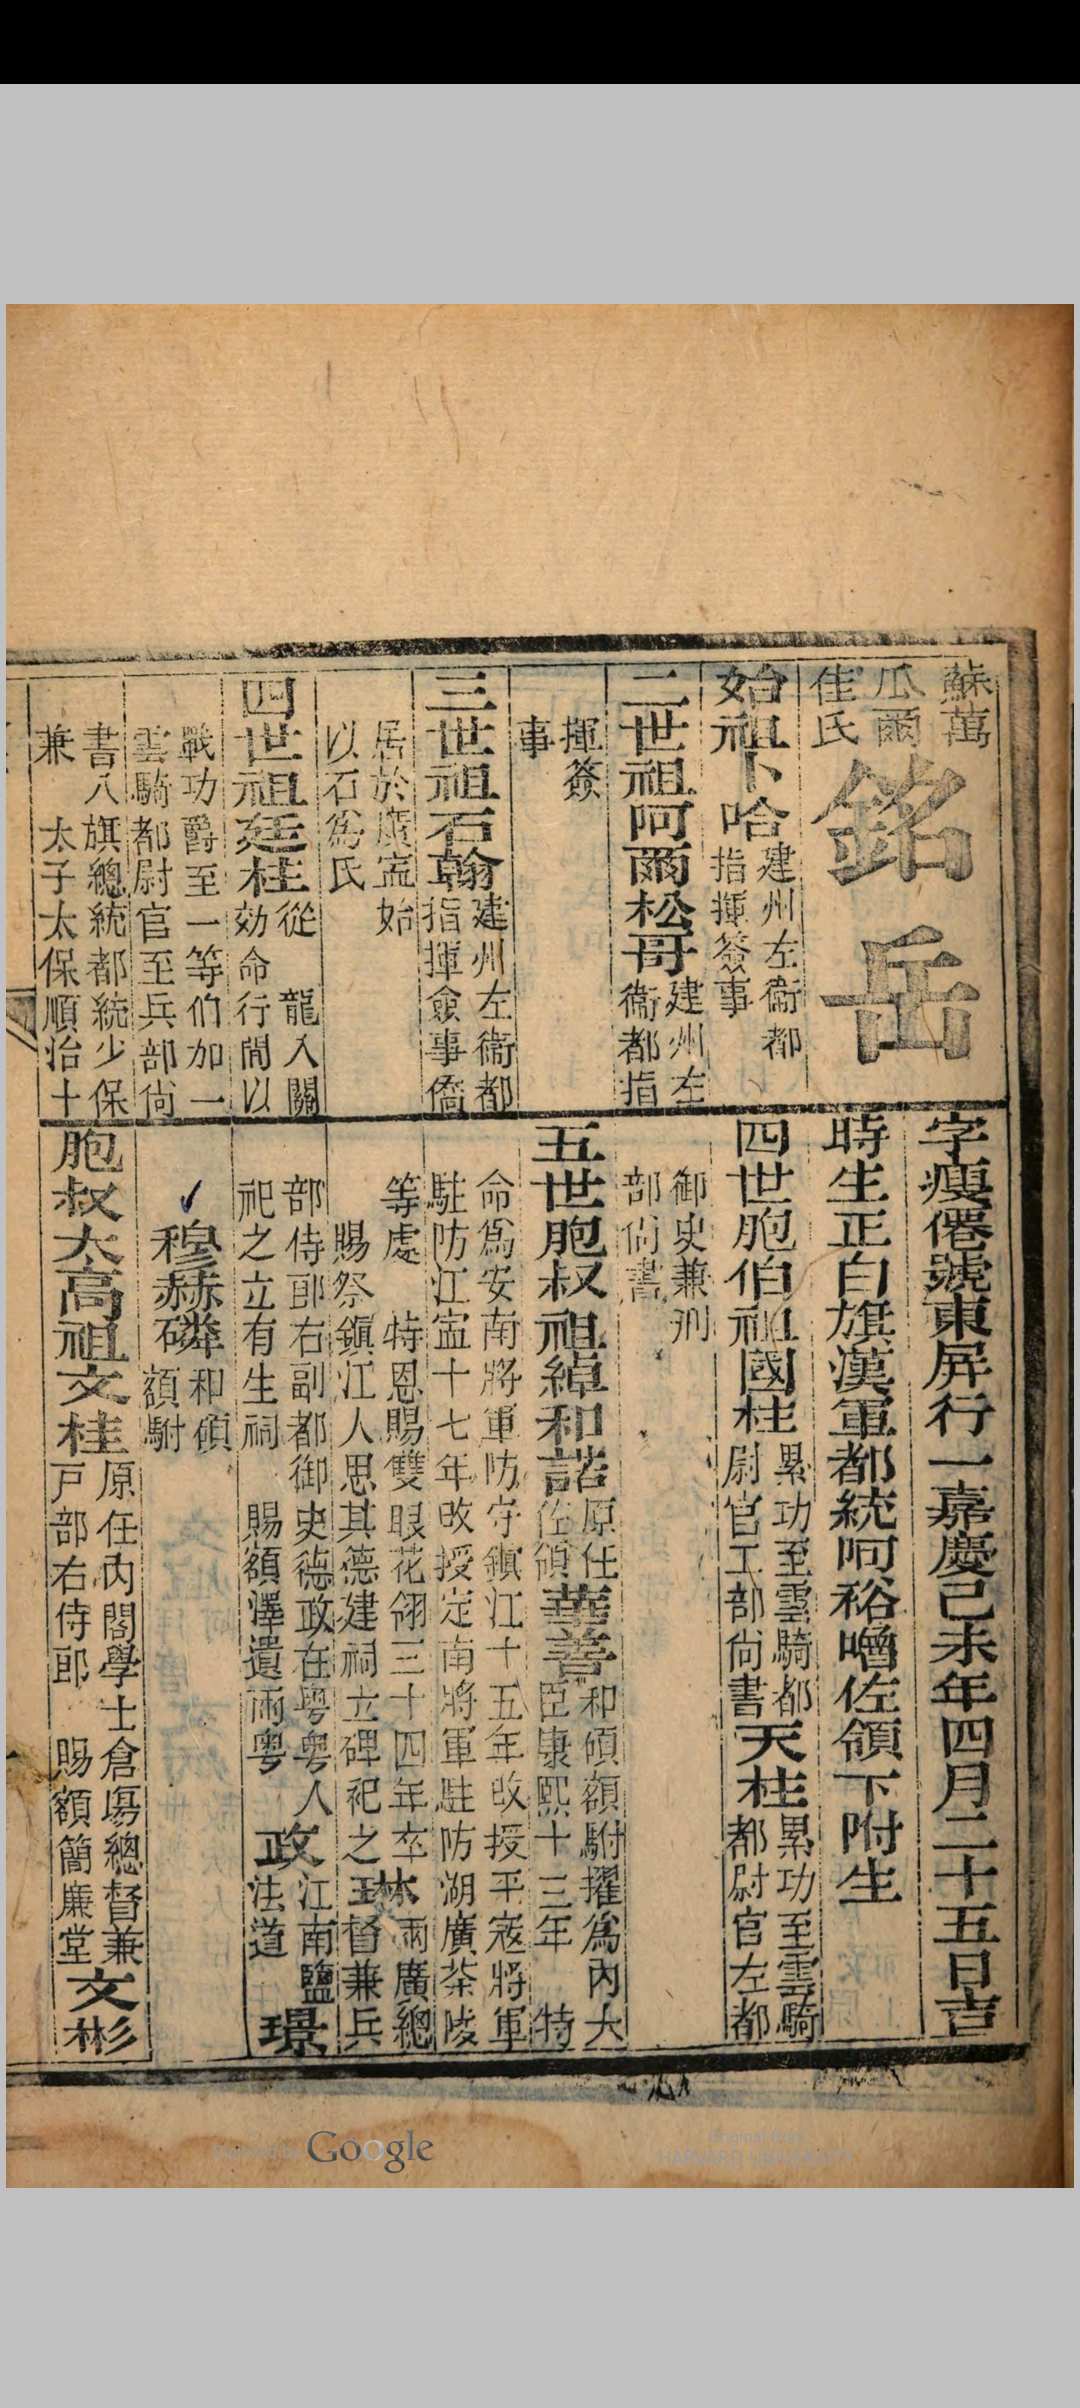 蘇萬
瓜爾
佳氏
銘岳
始祖卜哈建州左衞都
指揮簽事
二世祖阿爾松哥建州左
衞都指
揮簽
事
三世祖石翰建州左衞都
指揮僉事僑
居於廣寍始
以石爲氏
四世祖廷桂從龍入關
効命行間以
戰功爵至一等伯加一
雲騎都尉官至兵部尙
書八旗總統都統少保
兼太子太保順治十
字瘦僊號東屏行一嘉慶己未年四月二十五日吉
時生正白旗漢軍都統呵裕嚕佐領下附生
四世胞伯祖國桂累功至雲騎都
尉官工部尙書天桂累功至雲騎
都尉官左都
御史兼刑
部尙書
五世胞叔祖綽和諾原任
佐領華善和碩額駙擢爲內大
臣康熙十三年特
命爲安南將軍防守鎭江十五年改授平寇將軍
駐防江寍十七年改授定南將軍駐防湖廣茶陵
等處特恩賜雙眼花翎三十四年卒
賜祭鎭江人思其德建祠立碑祀之琳兩廣總
督兼兵
部侍郎右副都御史德政在粤粤人
祀之立有生祠賜額澤遺兩粤政江南鹽
法道璟
穆赫磷和碩
額駙
胞叔太高祖文桂原任內閣學士倉塲總督兼
戸部右侍郎賜額簡廉堂文彬
Google